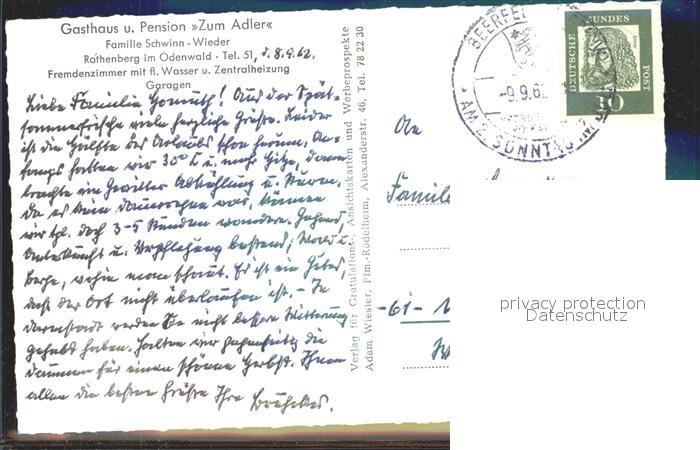 Gasthaus u. Pension »Zum Adler«
Familie Schwinn - Wieder
Rothenberg im Odenwald · Tel. 51, d. 8.9.62.
Fremdenzimmer mit fl. Wasser u. Zentralheizung
Garagen
Liebe Familie ! Aus der Spät-
sommerfrische viele herzliche Grüße. Leider
ist die Hälfte des Urlaubs schon herum. An-
fangs hatten wir 30° C u. mehr Hitze, dann
brachte ein Gewitter Abkühlung u. Sturm.
Da es kein Dauerregen war, können
wir tgl. doch 3-5 Stunden wandern. Gegend,
Unterkunft u. Verpflegung bestens; Wald u.
Berge, wohin man schaut. Es ist ein Glück,
daß der Ort nicht überlaufen ist. – In
Darmstadt werden Sie nicht bessere Witterung
gehabt haben. Halten wir gegenseitig die
Daumen für einen schönen Herbst. Ihnen
allen die besten Grüße Ihre
Verlag für Gratulations-, Ansichtskarten und Werbeprospekte
Adam Wiester, Ffm.-Rödelheim, Alexanderstr. 46, Tel. 78 22 30
BEERFELDEN
-9.9.62
AM 2. SONNTAG
DEUTSCHE BUNDESPOST
10
An
Famil
-61-
privacy protection
Datenschutz